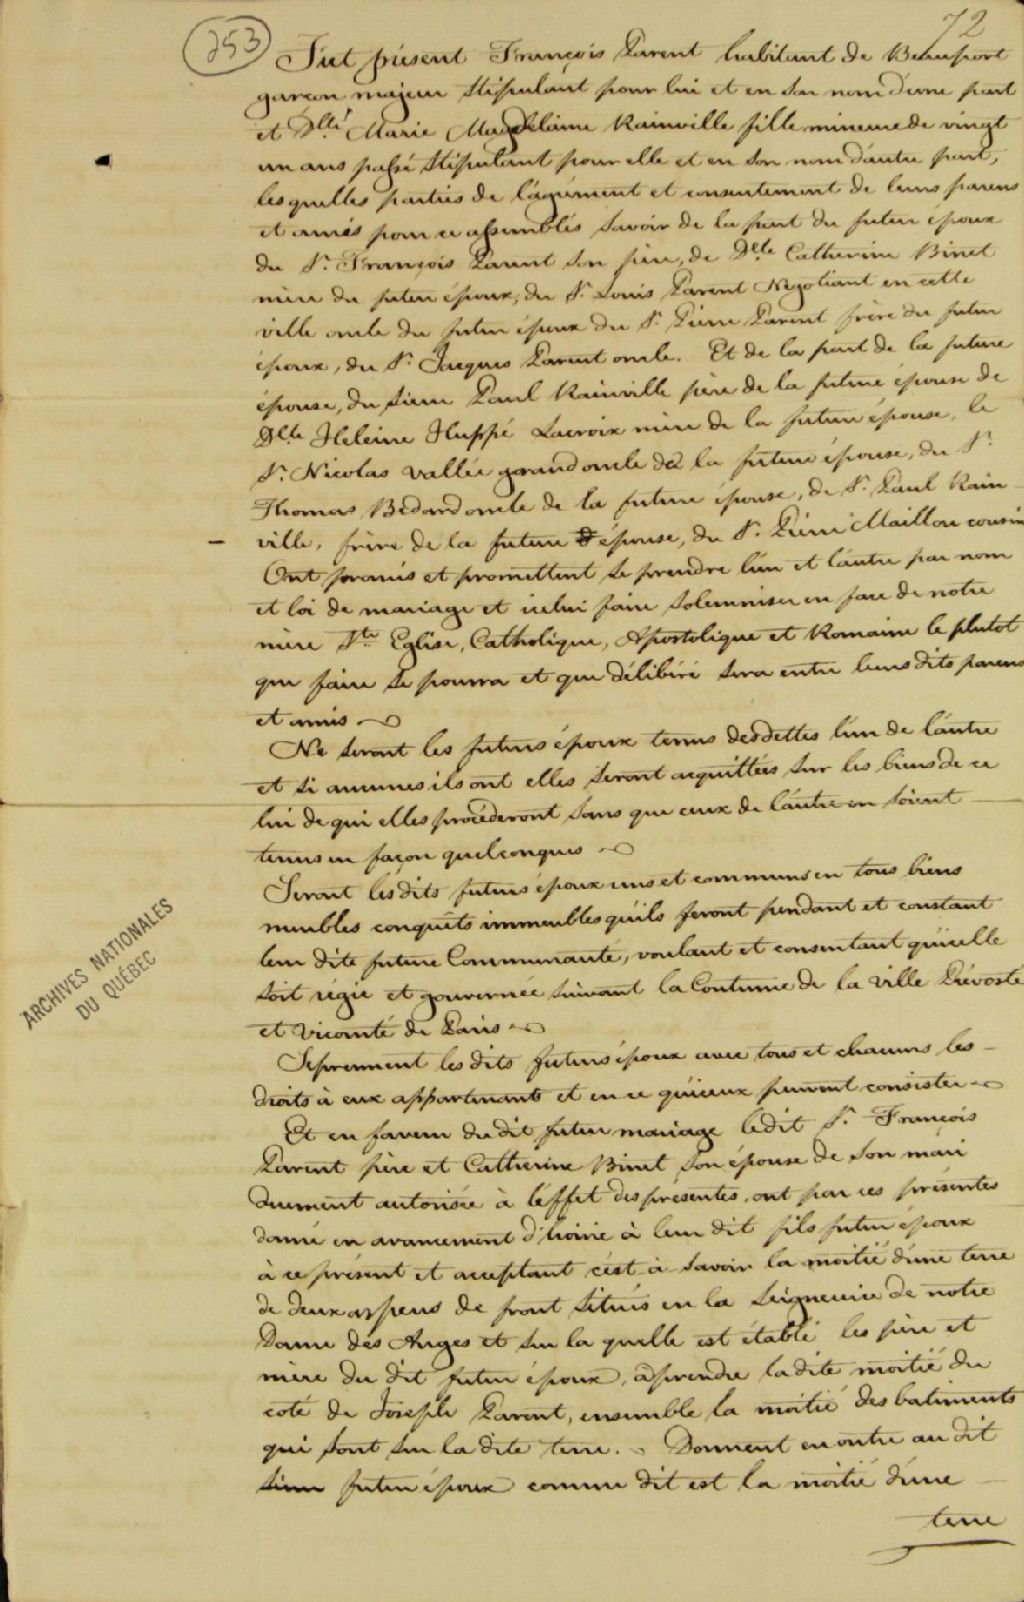 72
253
Fut présent François Parent habitant de Beauport
garçon majeur stipulant pour lui et en son nom d'une part
et Dlle Marie Magdelaine Rainville fille mineure de vingt
un ans passé stipulant pour elle et en son nom d'autre part,
les quelles parties de l'agrément et consentement de leurs parens
et amis pour ce assemblés savoir de la part du futur époux
du Sr. François Parent son père, de Delle Catherine Binet
mère du futur époux, du Sr. Louis Parent Negotiant en cette
ville oncle du futur époux du Sr. Pierre Parent frère du futur
époux, du Sr. Jacques Parent oncle. Et de la part de la future
épouse, du Sieur Paul Rainville père de la future épouse de
Delle Heleine Huppé Lacroix mère de la future épouse, le
Sr. Nicolas Vallée grand oncle de la future épouse, du Sr.
Thomas Bedard oncle de la future épouse, de Sr. Paul Rain-
ville, frère de la future épouse, du Sr. Pierre Maillou cousin
Ont promis et promettent se prendre l'un et l'autre par nom
et loi de mariage et icelui faire solemniser en face de notre
mère Ste Eglise, Catholique, Apostolique et Romaine le plutot
que faire se pourra et que délibéré sera entre leurs dits parens
et amis
Ne seront les futurs époux tenus des dettes l'un de l'autre
et si aucunes ils ont elles seront acquittées sur les biens de ce
lui de qui elles procèderont sans que ceux de l'autre en soient
tenus en façon quelconques
Seront les dits futurs époux uns et communs en tous biens
meubles conquêts immeubles qu'ils feront pendant et constant
leur dite future Communauté, voulant et consentant qu'icelle
soit régie et gouvernée suivant la Coutume de la ville Prévosté
et Vicomté de Paris
Se prennent les dits futurs époux avec tous et chacuns les
droits à eux appartenants et en ce qu'iceux peuvent consister
Et en faveur du dit futur mariage le dit Sr. François
Parent père et Catherine Binet son épouse de son mari
duement autorisée à l'effet des présentes, ont par ces présentes
donné en avancement d'hoirie à leur dit fils futur époux
à ce présent et acceptant c'est à savoir la moitié d'une terre
de deux arpens de front situés en la Seigneurie de notre
Dame des Anges et sur la quelle est établi les père et
mère du dit futur époux, à prendre la dite moitié du
coté de Joseph Parent, ensemble la moitié des batiments
qui sont sur la dite terre. Donnent en outre au dit
sieur futur époux comme dit est la moitié d'une
terre
ARCHIVES NATIONALES
DU QUÉBEC